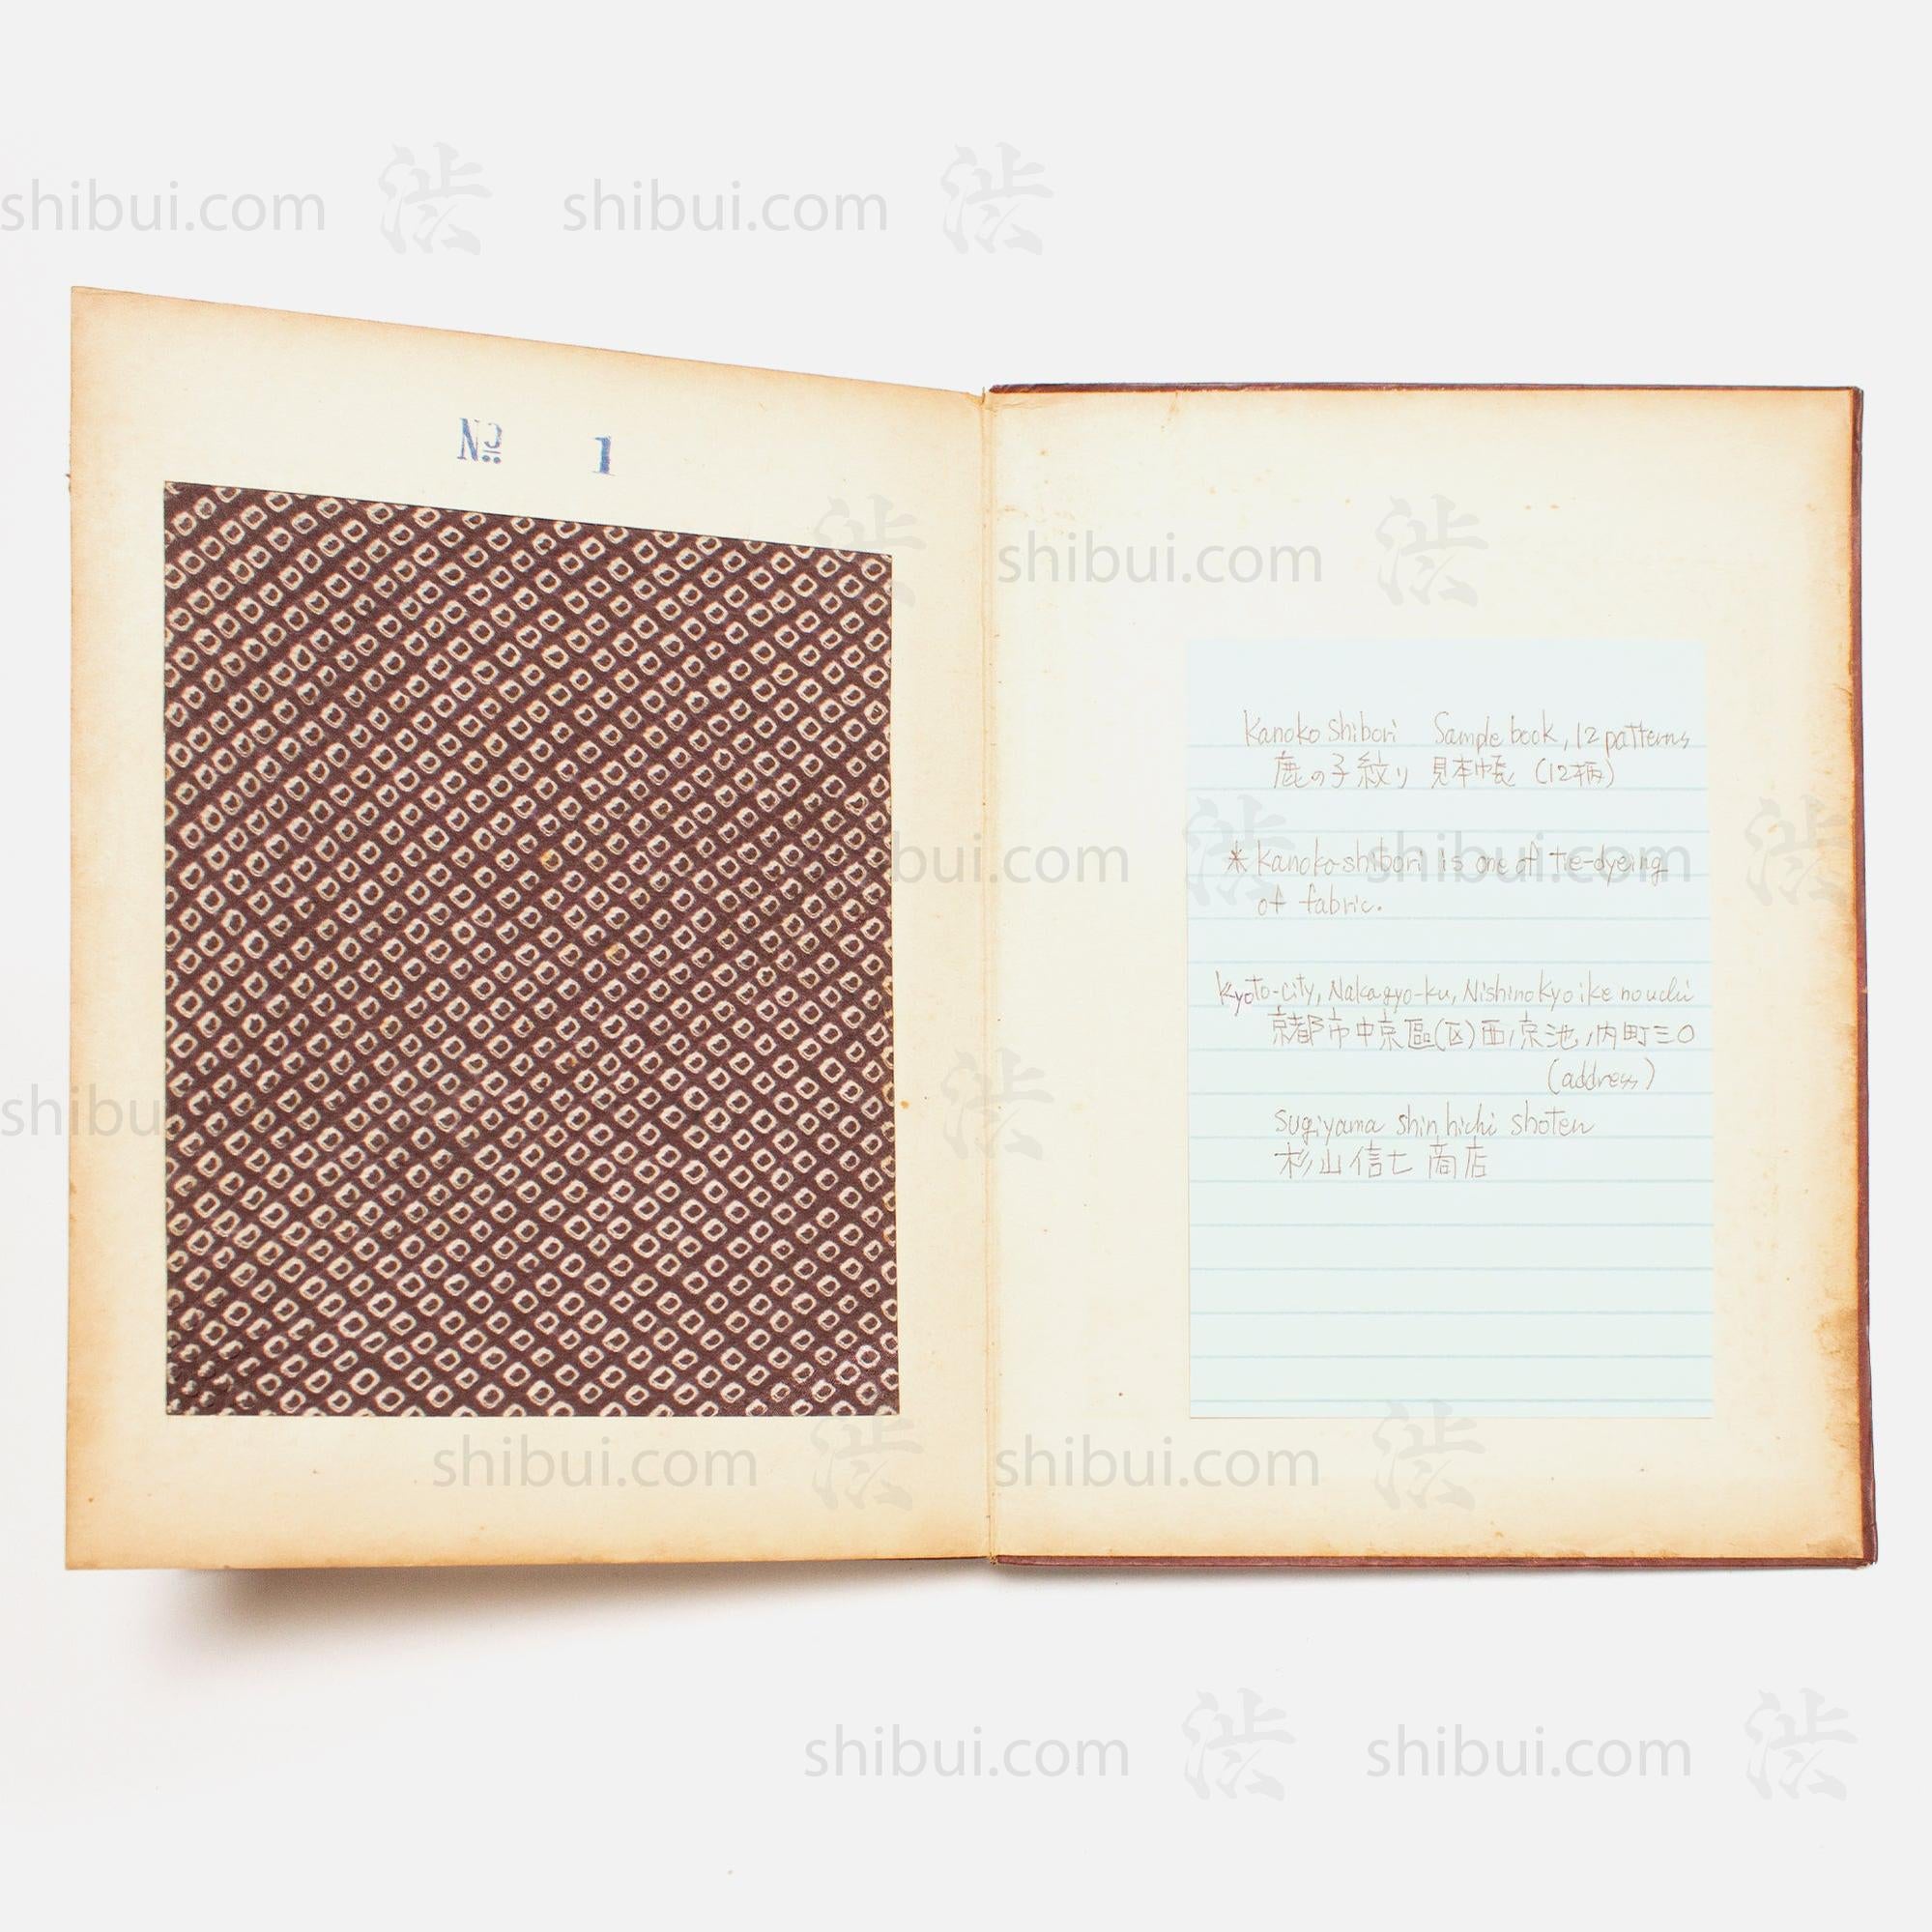 shibui.com 渋 shibui.com 渋
№ 1
shibui.com 渋
Kanoko Shibori Sample book, 12 patterns
鹿の子絞り 見本帳 (12柄)
* Kanoko-shibori is one of tie-dyeing
of fabric.
Kyoto-city, Nakagyo-ku, Nishinokyo ike no uchi
京都市中京區(区)西ノ京池ノ内町三〇
(address)
Sugiyama Shin hichi shoten
杉山信七 商店
shibui.com 渋 shibui.com 渋
shibui.com 渋 shibui.com 渋